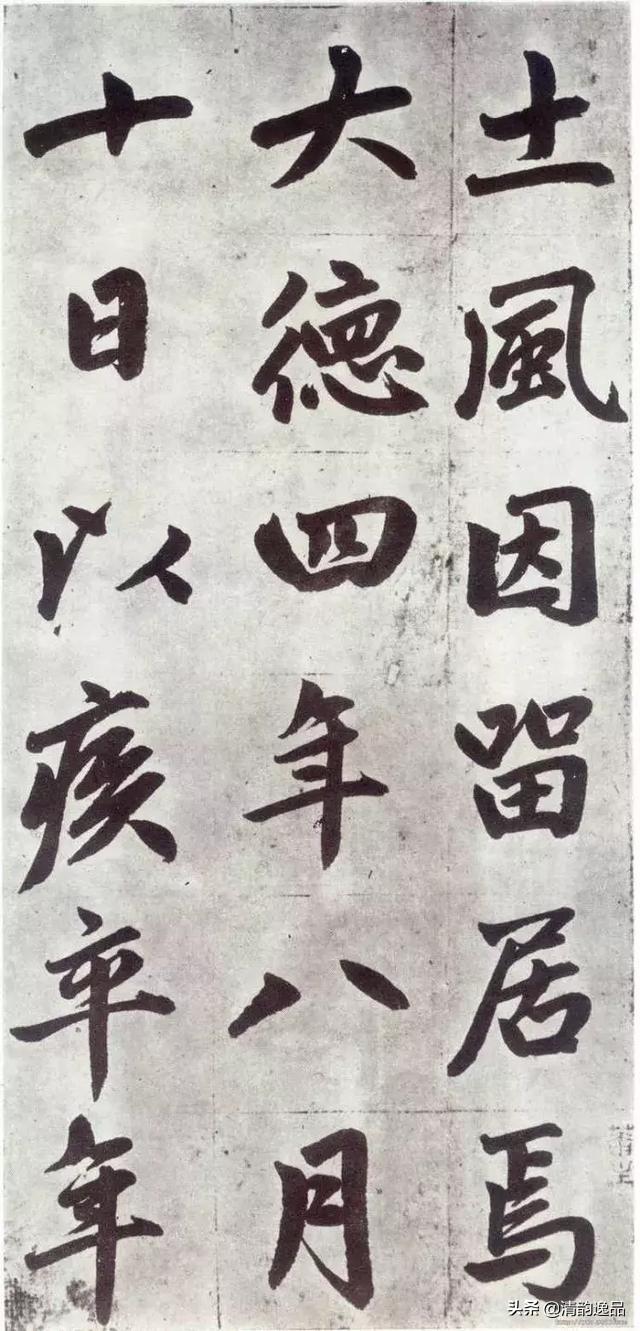 土風因留居焉
大德四年八月
十日以疾卒年
头条@清韵逸品